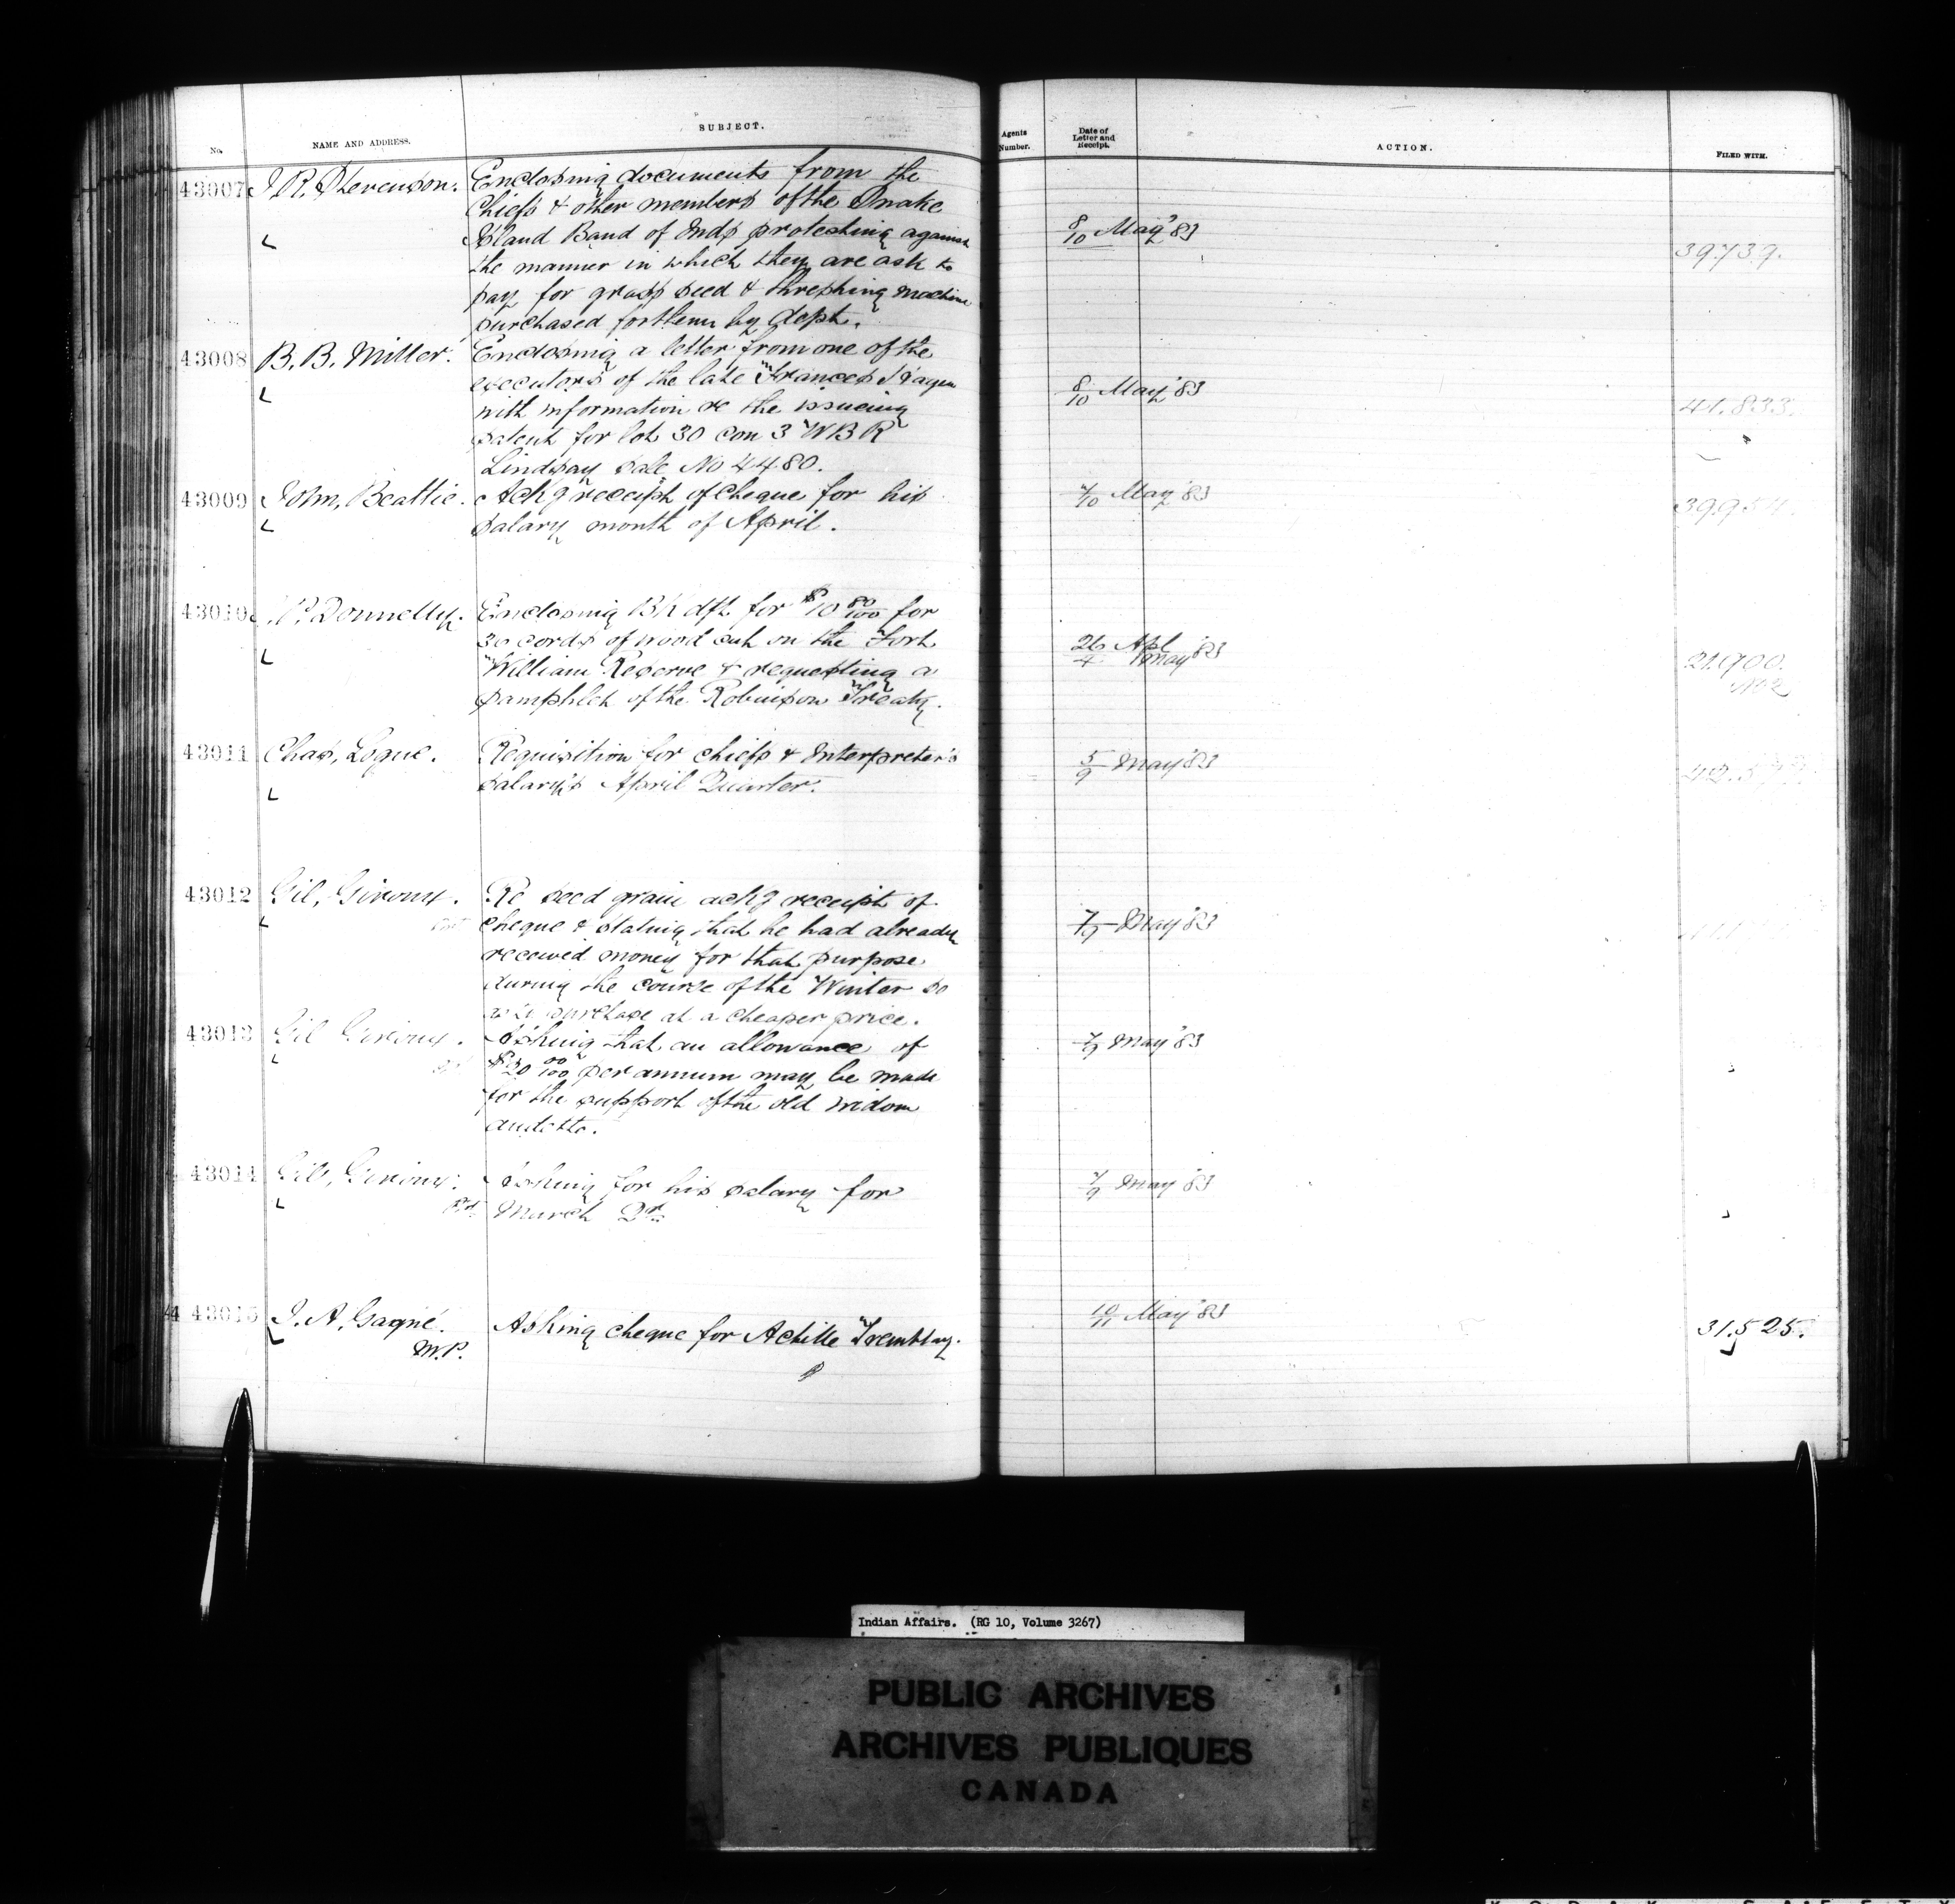 No. NAME AND ADDRESS. SUBJECT. Agents Number. Date of Letter and Receipt. ACTION. FILED WITH.
43007 J. R. Stevenson. Enclosing documents from the
Chiefs & other members of the Snake
Island Band of Inds protesting against 8/10 May '83
the manner in which they are ask to 39.739.
pay for grass seed & threshing machine
purchased for them by dept.
43008 B. B. Miller. Enclosing a letter from one of the
executors of the late Frances 8/10 May '83
with information re the issueing 41.833.
patent for lot 30 con 3 W B R
Lindsay sale No 4480.
43009 John, Beattie. Ackg receipt of cheque for his 7/10 May '83 39.954.
salary month of April.
43010 J. P. Donnelly. Enclosing Bk dft for $10 80/100 for
30 cords of wood cut on the Fort 26 Apl / 4 May '83
William Reserve & requesting a 21.900.
pamphlet of the Robinson Treaty. No 2
43011 Chas, Logue. Requisition for chiefs & Interpreter's 5/9 May '83
salary's April Quarter.
43012 Gil, Giroux. Re seed grain ackg receipt of
cheque & stating that he had already 7/9 May '83
received money for that purpose
during the course of the Winter so
as to purchase at a cheaper price.
43013 Gil Giroux. Asking that an allowance of 7/9 May '83
$20 00/100 per annum may be made
for the support of the old widow
audette.
43014 Gil, Giroux. Asking for his salary for 7/9 May '83
March Qr.
43015 J. A, Gagné. Asking cheque for Achille Tremblay. 10/11 May '83 31.525.
M.P.
Indian Affairs. (RG 10, Volume 3267)
PUBLIC ARCHIVES
ARCHIVES PUBLIQUES
CANADA